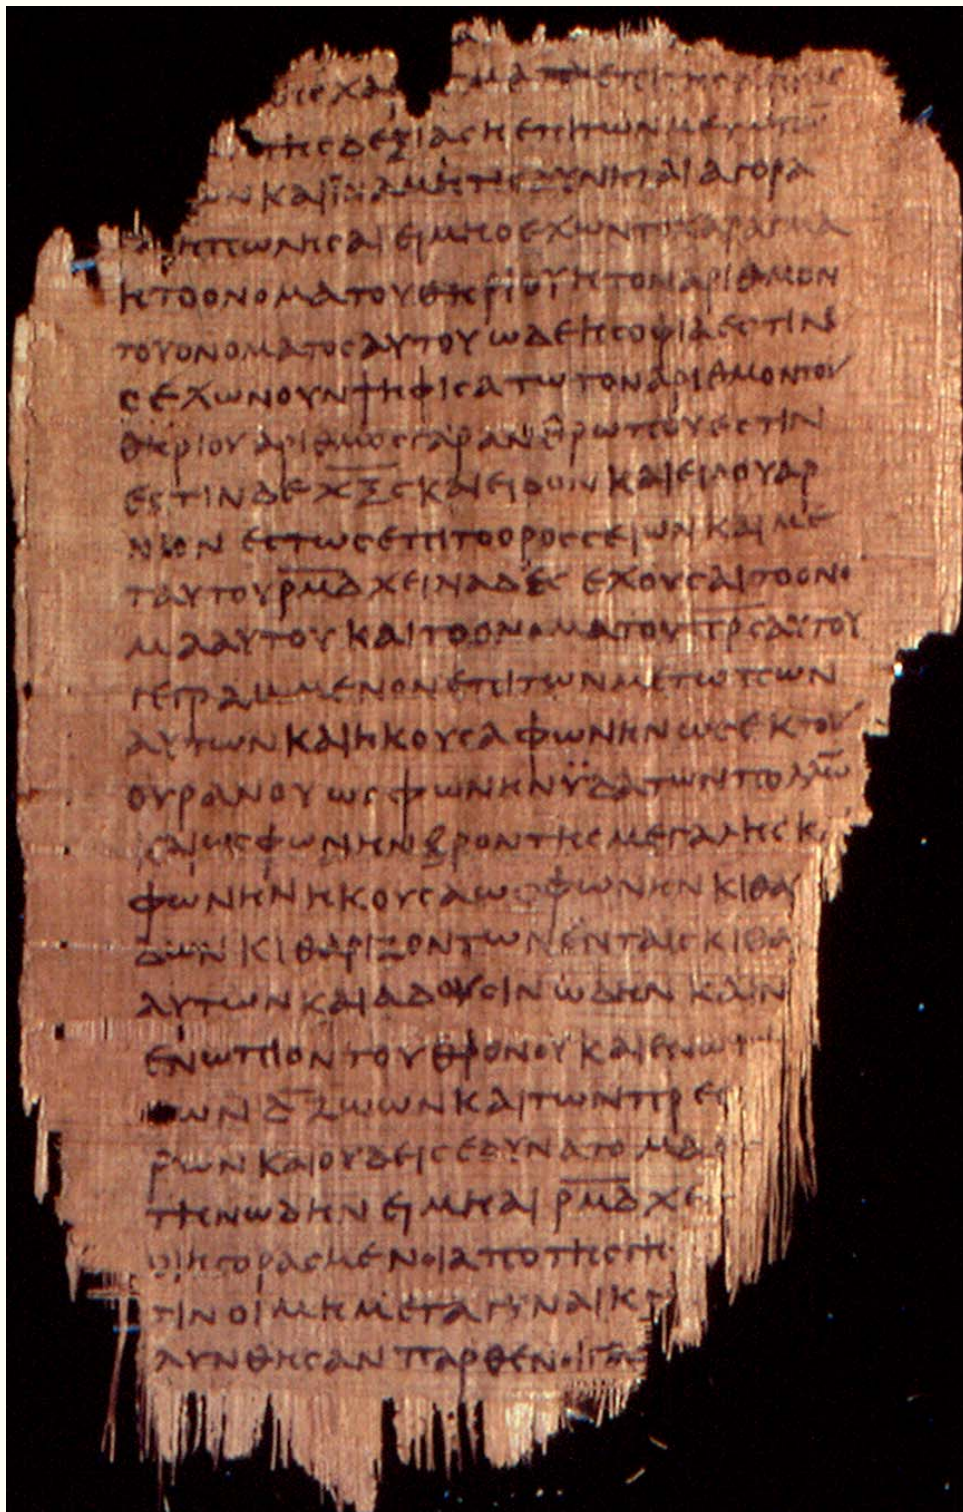 χαρ
τηϲ δεξιαϲ η επι των μετωπω̅
ων και ϊνα μητιϲ δυνηται αγορα
η πωληϲαι ει μη ο εχων το χαραγμα
η το ονομα του θηριου η τον αριθμον
του ονοματοϲ αυτου ωδε η ϲοφια εϲτιν ο
ϲ εχων ουν ψηφιϲατω τον αριθμον του
θηριου αριθμοϲ γαρ ανθρωπου εϲτιν
εϲτιν δε χ̅ξ̅ϲ̅ και ειδον και ειδου αρ
νιον εϲτωϲ επι το οροϲ ϲειων και με
τ αυτου ρ̅μ̅δ̅ χειλιαδεϲ εχουϲαι το ονο
μα αυτου και το ονομα του π̅ρ̅ϲ̅ αυτου
γεγραμμενον επι των μετωπων
αυτων και ηκουϲα φωνην ωϲ εκ του
ουρανου ωϲ φωνην ϋδατων πολλω̅
και ωϲ φωνην βροντηϲ μεγαληϲ κ
φωνην ηκουϲα ωϲ φωνην κιθα
δων κιθαριζοντων εν ταιϲ κιθα
αυτων και αδουϲιν ωδην καιν
ενωπιον του θρονου και ενωπ
των δ̅ ζωων και των πρεϲ
ρων και ουδειϲ εδυνατο μαθ
την ωδην ει μη αι ρ̅μ̅δ̅ χει
οι ηγοραϲμενοι απο τηϲ γη
τιν οι μη μετα γυναικ
λυνθηϲαν παρθενοι γαρ